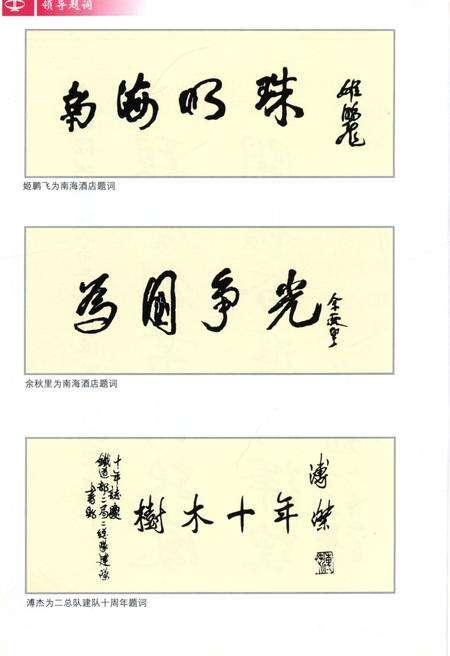 领导题词
南海明珠
姬鵬飛
姬鹏飞为南海酒店题词
為國爭光
余秋里
余秋里为南海酒店题词
鐵道部二局二總隊建隊
十年誌慶
樹木十年
溥傑
溥杰为二总队建队十周年题词